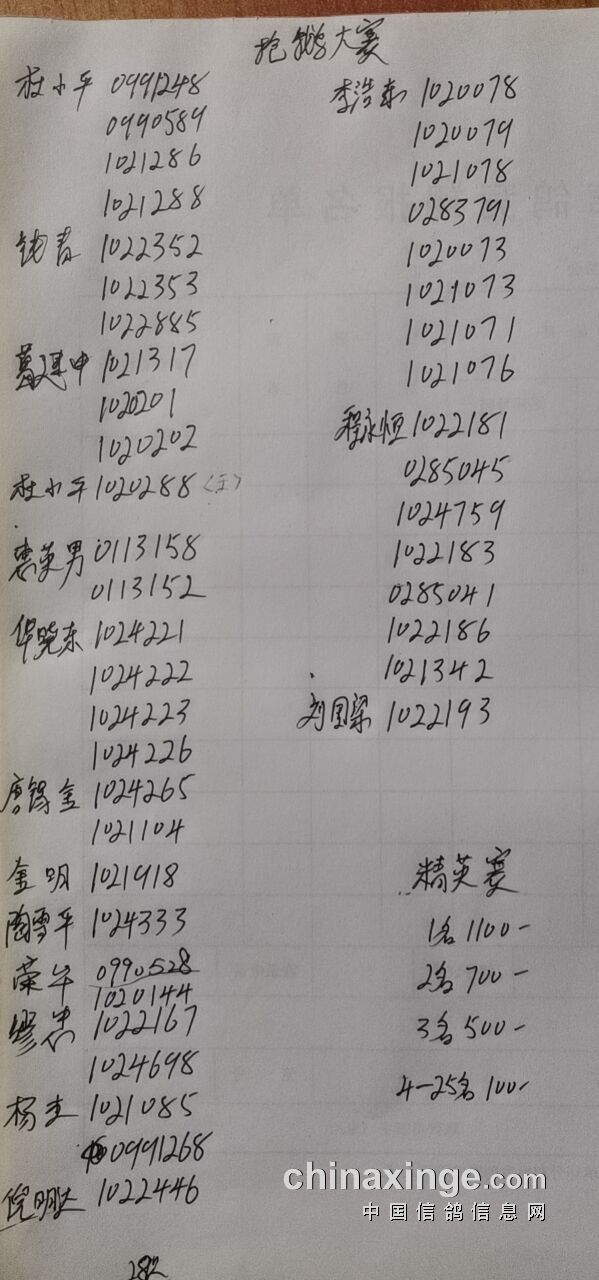 抢鸽大赛
杜小平 0991248
0990589
1021286
1021288
钱青 1022352
1022353
1022885
葛建中 1021317
1020201
1020202
杜小平 1020288
惠英男 0113158
0113152
华晓东 1024221
1024222
1024223
1024226
唐锡金 1024265
1021104
金明 1021918
陶雪平 1024333
荣华 0990528
1020144
缪忠 1022167
1024698
杨圭 1021085
0991268
倪明 1022446
282
李浩东 1020078
1020079
1021078
0283791
1020073
1021073
1021071
1021076
程永恒 1022181
0285045
1024759
1022183
0285041
1022186
1021342
刘国梁 1022193
精英赛
1名 1100-
2名 700-
3名 500-
4-25名 100-
报名单
chinaxinge.com
中国信鸽信息网